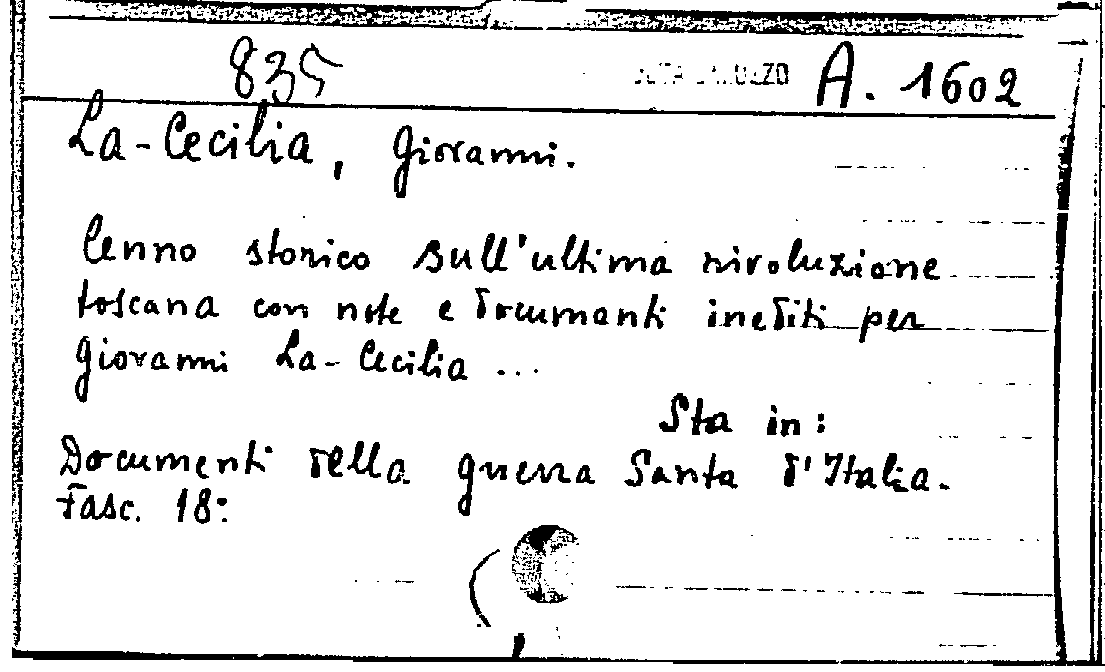 835 A. 1602
La-Cecilia, Giovanni.
Cenno storico sull'ultima rivoluzione
toscana con note e documenti inediti per
Giovanni La-Cecilia ...
Sta in:
Documenti della guerra Santa d'Italia.
Fasc. 18: